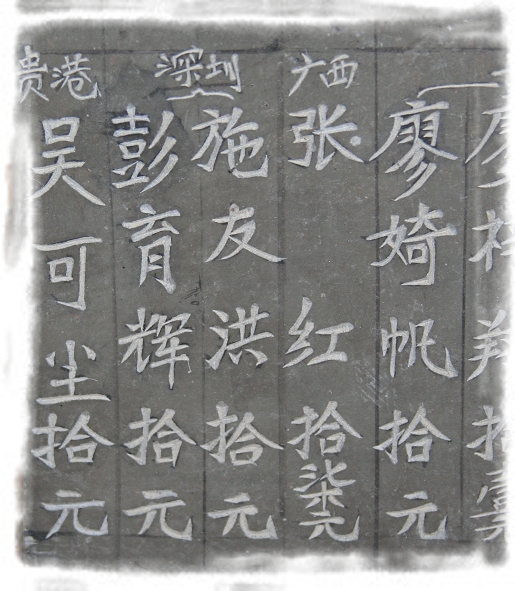 廖婍帆拾元
广西
张红拾柒元
深圳
施友洪拾元
彭育辉拾元
贵港
吴可尘拾元